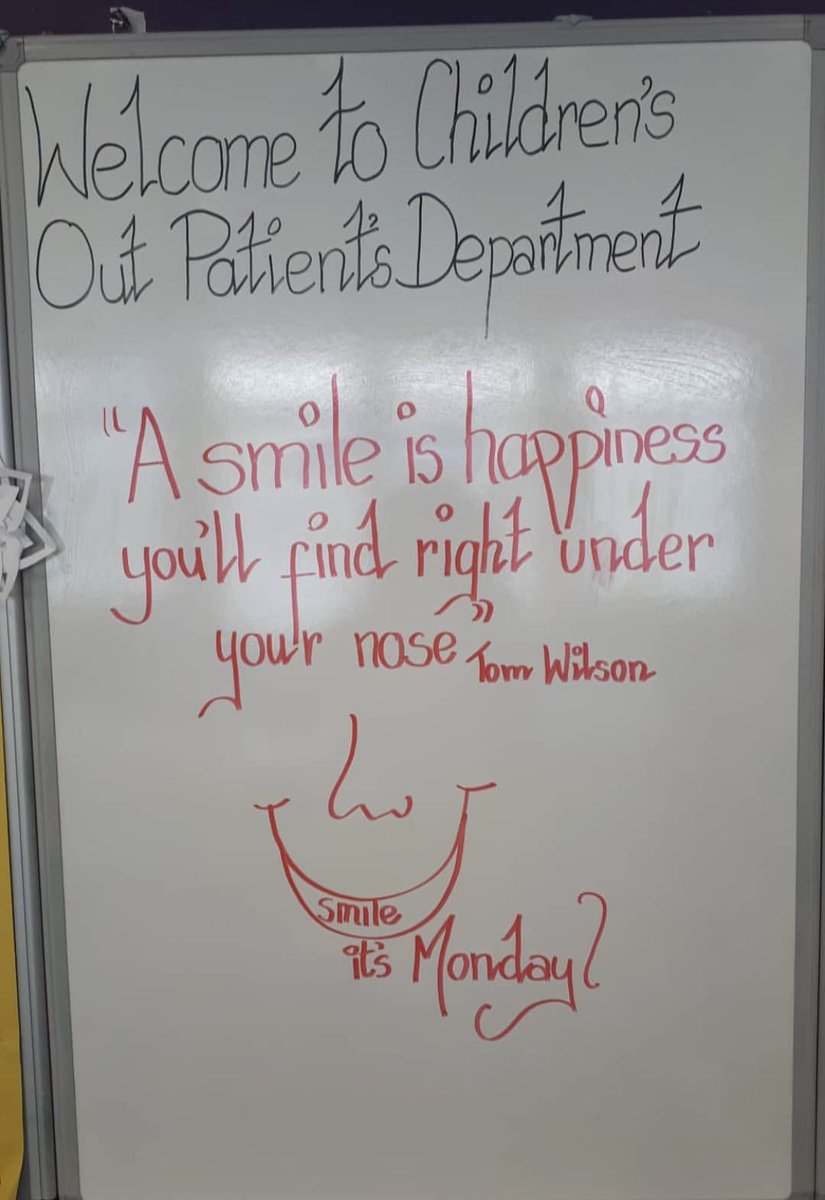 Welcome to Children's
Out Patient's Department
"A smile is happiness
you'll find right under
your nose"
Tom Wilson
smile
it's Monday?